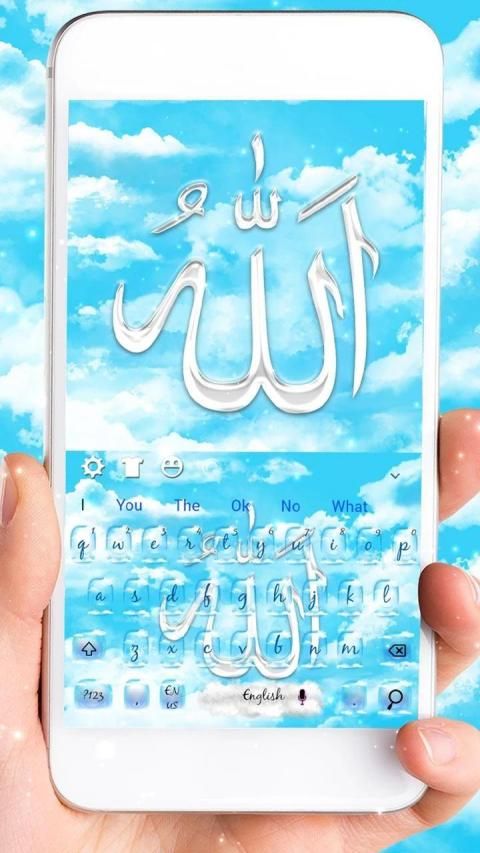 اللّٰهُ
I You The Ok No What
q1 w2 e3 r4 t5 y6 u7 i8 o9 p0
a s d f g h j k l
اللّٰهُ
z x c v b n m
?123 , EN US English .